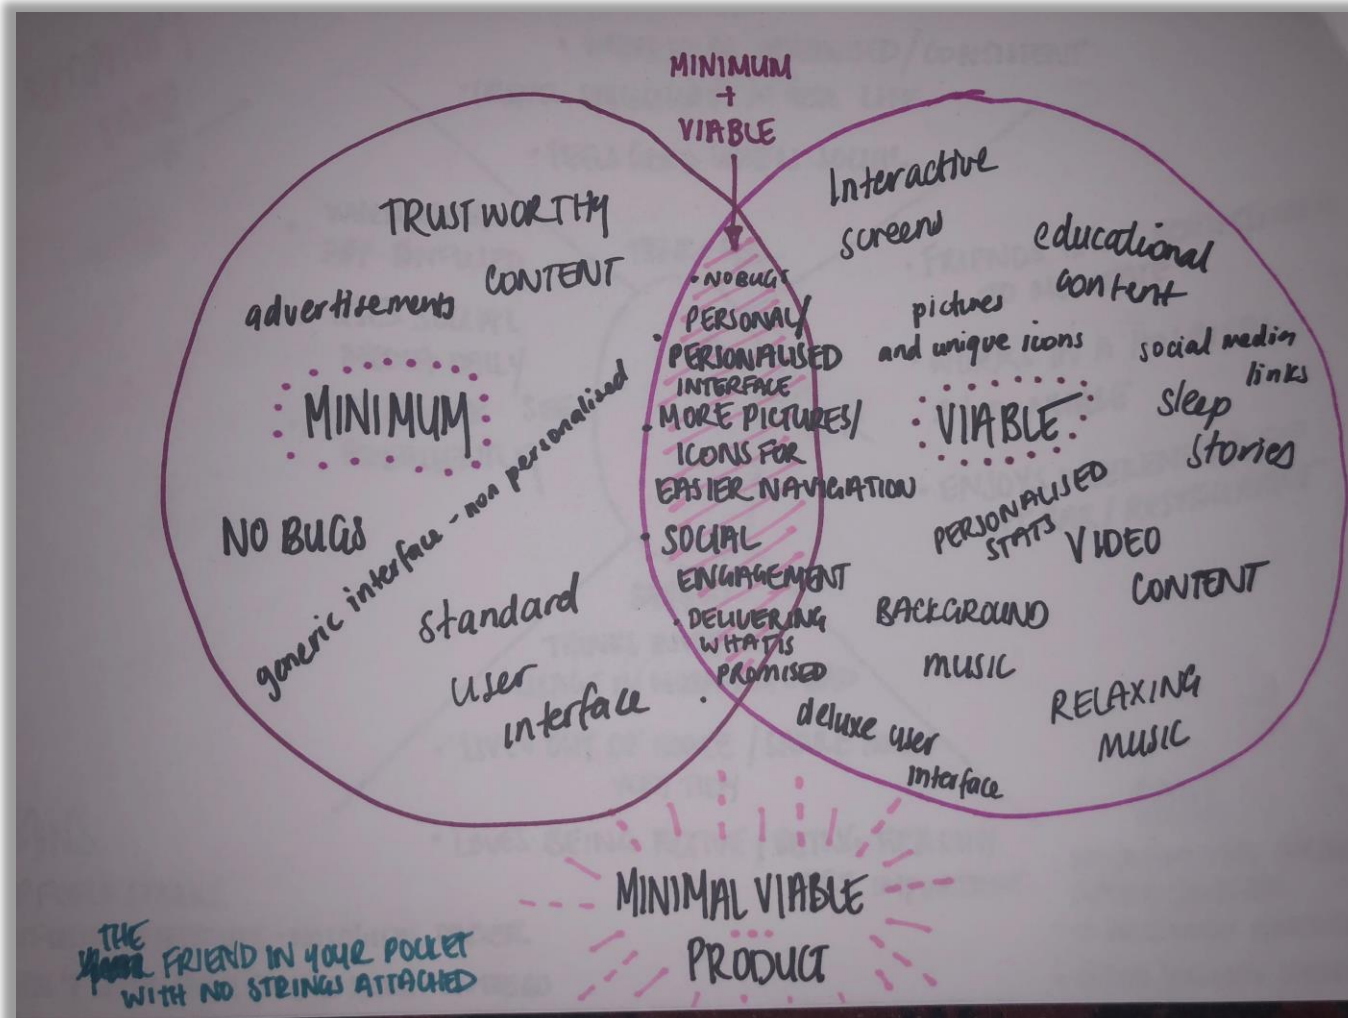 MINIMUM
+
VIABLE
TRUSTWORTHY
CONTENT
advertisements
MINIMUM
NO BUGS
generic interface - non personalised
standard
user
interface
• NO BUGS
• PERSONAL/
PERSONALISED
INTERFACE
• MORE PICTURES/
ICONS FOR
EASIER NAVIGATION
• SOCIAL
ENGAGEMENT
• DELIVERING
WHAT IS
PROMISED
•
Interactive
screens
educational
content
pictures
and unique icons
social media
links
VIABLE
sleep
stories
PERSONALISED
STATS
VIDEO
CONTENT
BACKGROUND
MUSIC
RELAXING
MUSIC
deluxe user
interface
MINIMAL VIABLE
PRODUCT
THE
FRIEND IN YOUR POCKET
WITH NO STRINGS ATTACHED